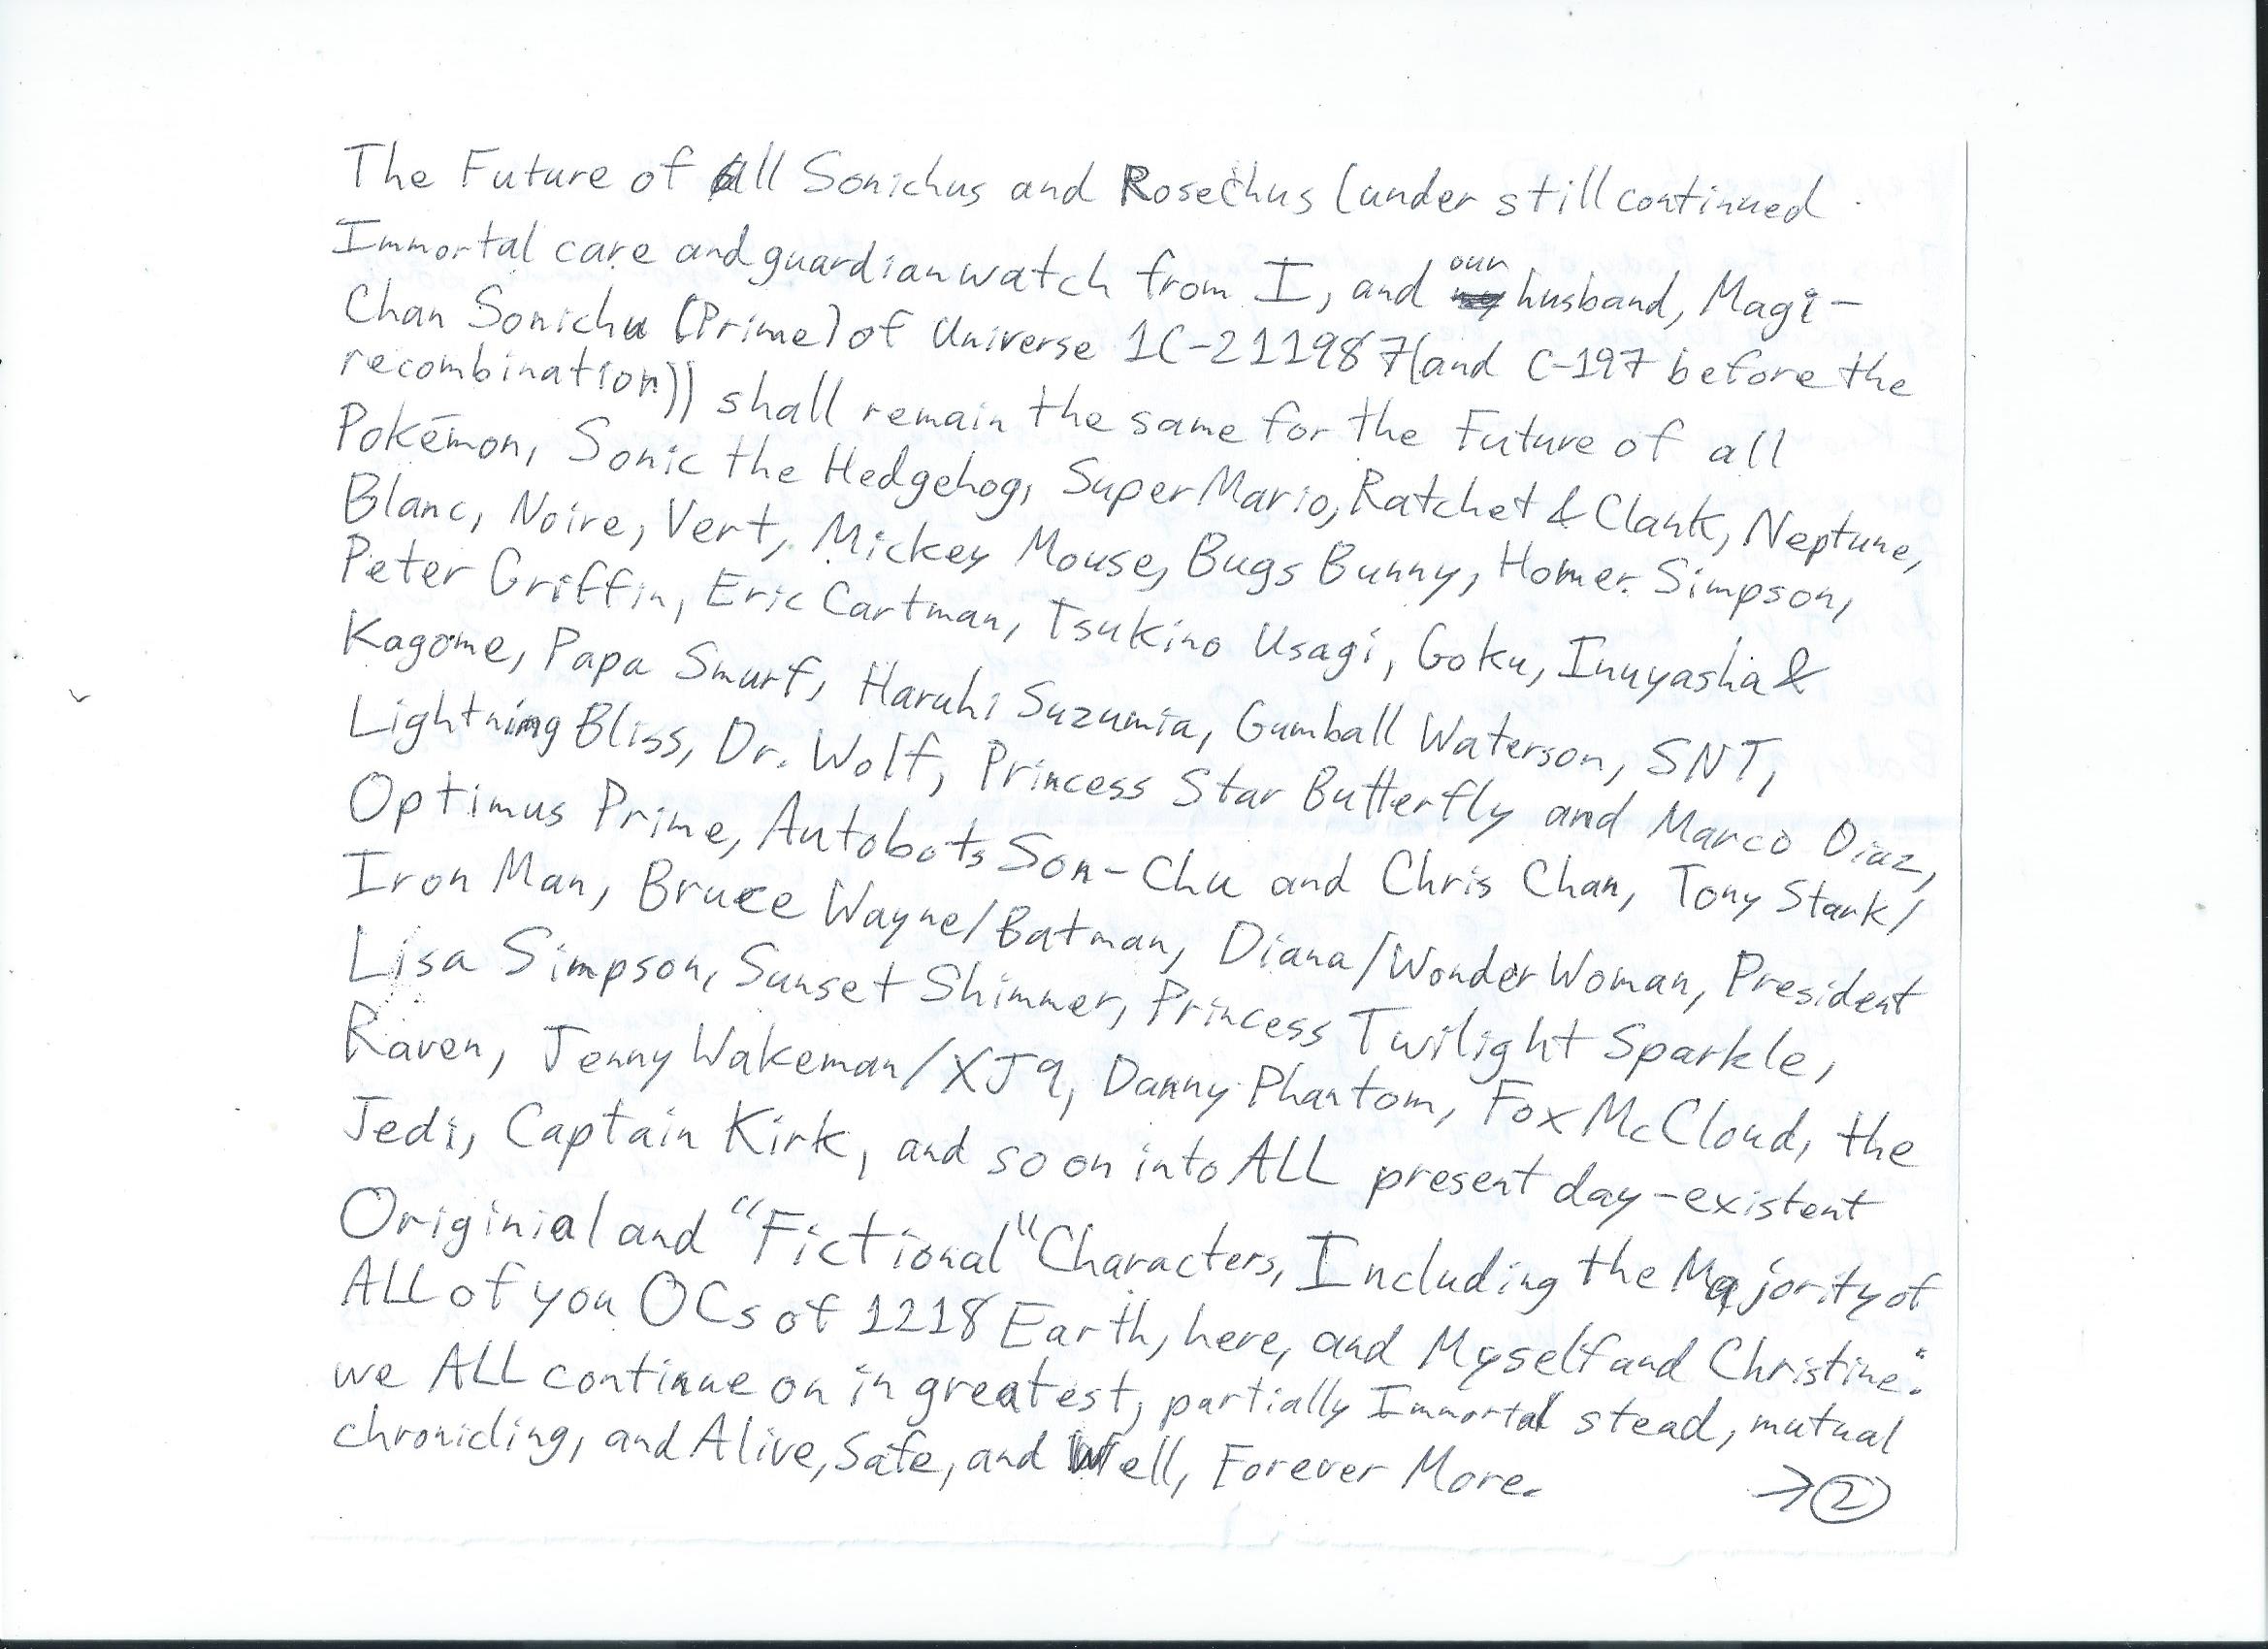 The Future of all Sonichus and Rosechus (under still continued
Immortal care and guardian watch from I, and our husband, Magi-
Chan Sonichu (Prime) of Universe 1C-211987(and C-197 before the
recombination)) shall remain the same for the Future of all
Pokémon, Sonic the Hedgehog, Super Mario, Ratchet & Clank, Neptune,
Blanc, Noire, Vert, Mickey Mouse, Bugs Bunny, Homer Simpson,
Peter Griffin, Eric Cartman, Tsukino Usagi, Goku, Inuyasha &
Kagome, Papa Smurf, Haruhi Suzumia, Gumball Waterson, SNT,
Lightning Bliss, Dr. Wolf, Princess Star Butterfly and Marco Diaz,
Optimus Prime, Autobots Son-Chu and Chris Chan, Tony Stark/
Iron Man, Bruce Wayne/Batman, Diana/Wonder Woman, President
Lisa Simpson, Sunset Shimmer, Princess Twilight Sparkle,
Raven, Jenny Wakeman/XJ9, Danny Phantom, Fox McCloud, the
Jedi, Captain Kirk, and so on into ALL present day-existent
Originial and "Fictional" Characters, Including the Majority of
ALL of you OCs of 1218 Earth, here, and Myself and Christine:
we ALL continue on in greatest, partially Immortal stead, mutual
chronicling, and Alive, Safe, and Well, Forever More.
→②